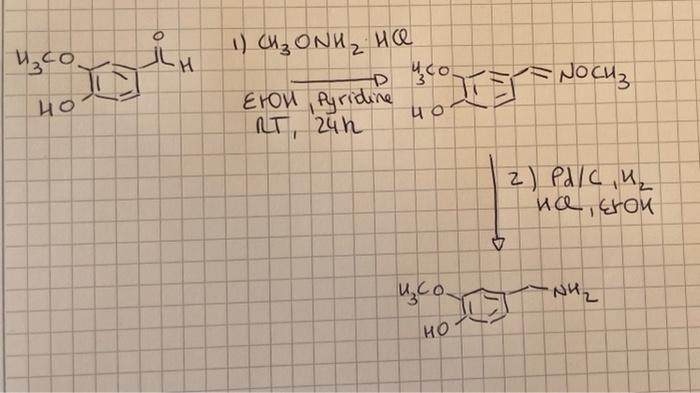 O
H₃CO
H
HO
1) CH₃ONH₂·HCl
EtOH, Pyridine
RT, 24h
H₃CO
NOCH₃
HO
2) Pd/C, H₂
HCl, EtOH
H₃CO
NH₂
HO